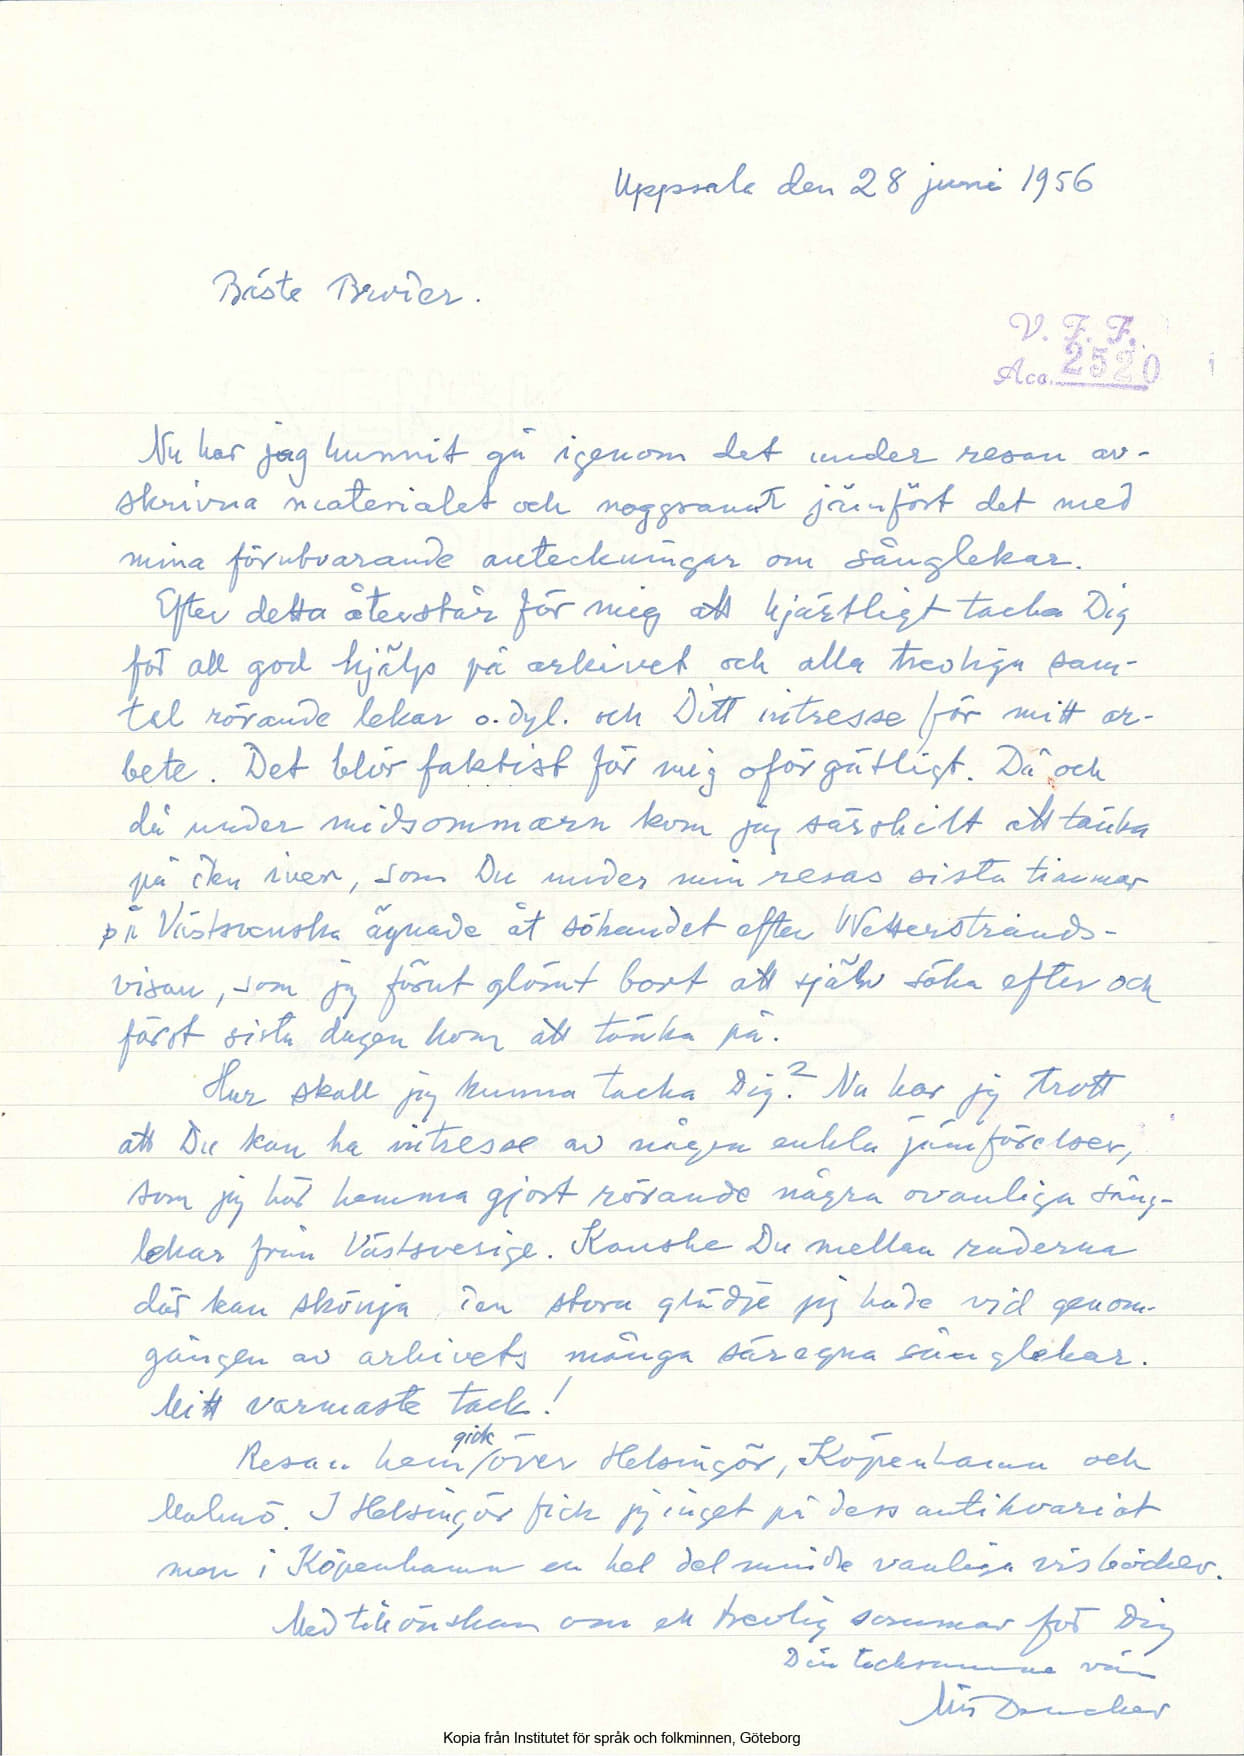 Uppsala den 28 juni 1956
Bäste Broder.
V. F. F.
Acc. 2520
Nu har jag hunnit gå igenom det under resan av-
skrivna materialet och noggrannt jämfört det med
mina förutvarande anteckningar om sånglekar.
Efter detta återstår för mig att hjärtligt tacka Dig
för all god hjälp på arkivet och alla trevliga sam-
tal rörande lekar o. dyl. och Ditt intresse för mitt ar-
bete. Det blir faktist för mig oförgätligt. Då och
då under midsommarn kom jag särskilt att tänka
på den iver, som Du under min resas sista timmar
på Västsvenska ägnade åt sökandet efter Wetterstrands-
visan, som jag förut glömt bort att själv söka efter och
först sista dagen kom att tänka på.
Hur skall jag kunna tacka Dig? Nu har jag trott
att Du kan ha intresse av några enkla jämförelser,
som jag här hemma gjort rörande några ovanliga sång-
lekar från Västsverige. Kanske Du mellan raderna
där kan skönja den stora glädje jag hade vid genom-
gången av arkivets många säregna sånglekar.
Mitt varmaste tack!
Resan hem gick över Helsingör, Köpenhamn och
Malmö. I Helsingör fick jag inget på dess antikvariat
men i Köpenhamn en hel del mindre vanliga visböcker.
Med tillönskan om en trevlig sommar för Dig
Din tacksamme vän
Kopia från Institutet för språk och folkminnen, Göteborg